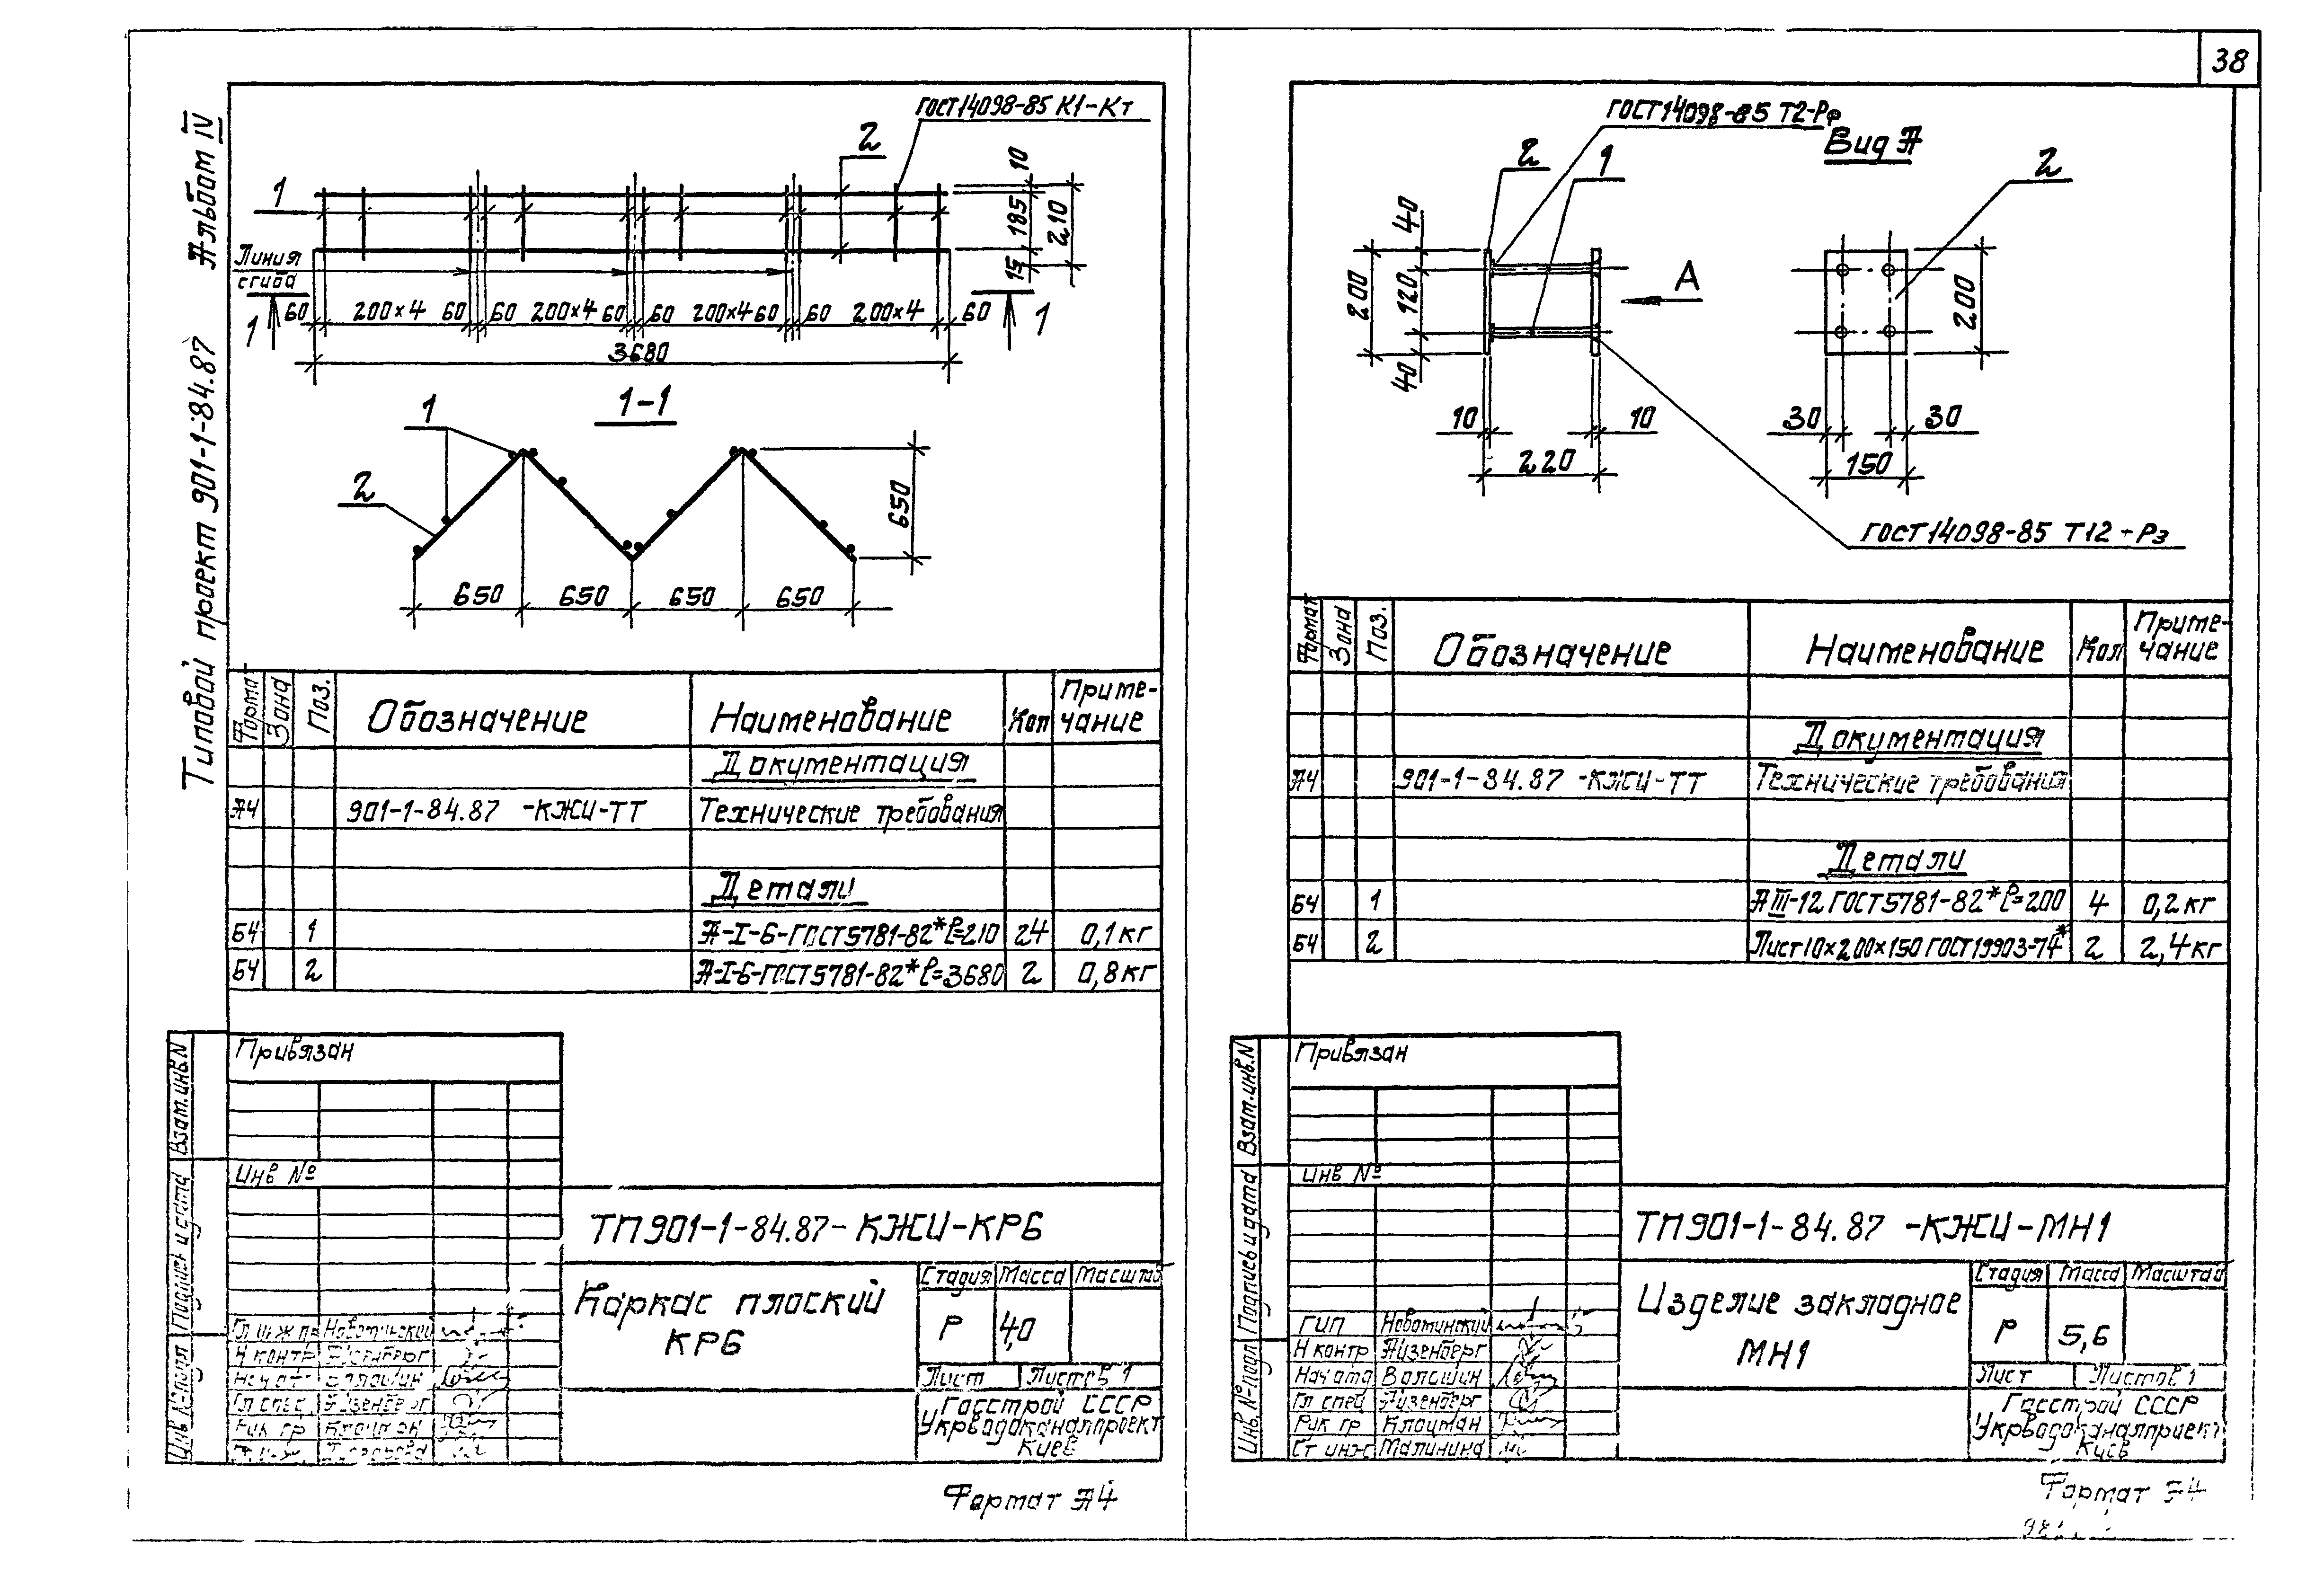 38
Альбом IV
Типовой проект 901-1-84.87
ГОСТ 14098-85 К1-Кт
2
1
10
185
210
15
Линия
сгиба
1
60 200×4 60 60 200×4 60 60 200×4 60 60 200×4 60
1
3680
1-1
1
2
650
650 650 650 650
Формат Зона Поз. Обозначение Наименование Кол Приме-
чание
Документация
А4 901-1-84.87 -КЖИ-ТТ Технические требования
Детали
Б4 1 А-I-6-ГОСТ5781-82* ℓ=210 24 0,1кг
Б4 2 А-I-6-ГОСТ5781-82* ℓ=3680 2 0,8кг
Привязан
Инв №
Взам.инв.N
Подпись и дата
Инв.№ подл
ТП901-1-84.87-КЖИ-КР6
Каркас плоский
КР6
Стадия Масса Масштаб
Р 4,0
Лист Листов 1
Госстрой СССР
Укрводоканалпроект
Киев
Н контр Айзенберг
Нач от Волошин
Гл спец Айзенберг
Рук гр Клоцман
Формат А4
ГОСТ 14098-85 Т2-Рф
Вид А
2
1
2
40
200
120
40
А
200
10 10
220
30 30
150
ГОСТ 14098-85 Т12-Рз
Формат Зона Поз. Обозначение Наименование Кол Приме-
чание
Документация
А4 901-1-84.87 -КЖИ-ТТ Технические требования
Детали
Б4 1 АIII-12 ГОСТ5781-82* ℓ=200 4 0,2кг
Б4 2 Лист 10×200×150 ГОСТ19903-74* 2 2,4кг
Привязан
Инв №
Взам.инв.N
Подпись и дата
Инв.№ подл
ТП901-1-84.87 -КЖИ-МН1
Изделие закладное
МН1
Стадия Масса Масштаб
Р 5,6
Лист Листов 1
Госстрой СССР
Укрводоканалпроект
Киев
ГИП Новоминский
Н контр Айзенберг
Нач отд Волошин
Гл спец Айзенберг
Рук гр Клоцман
Ст инж Малинина
Формат А4